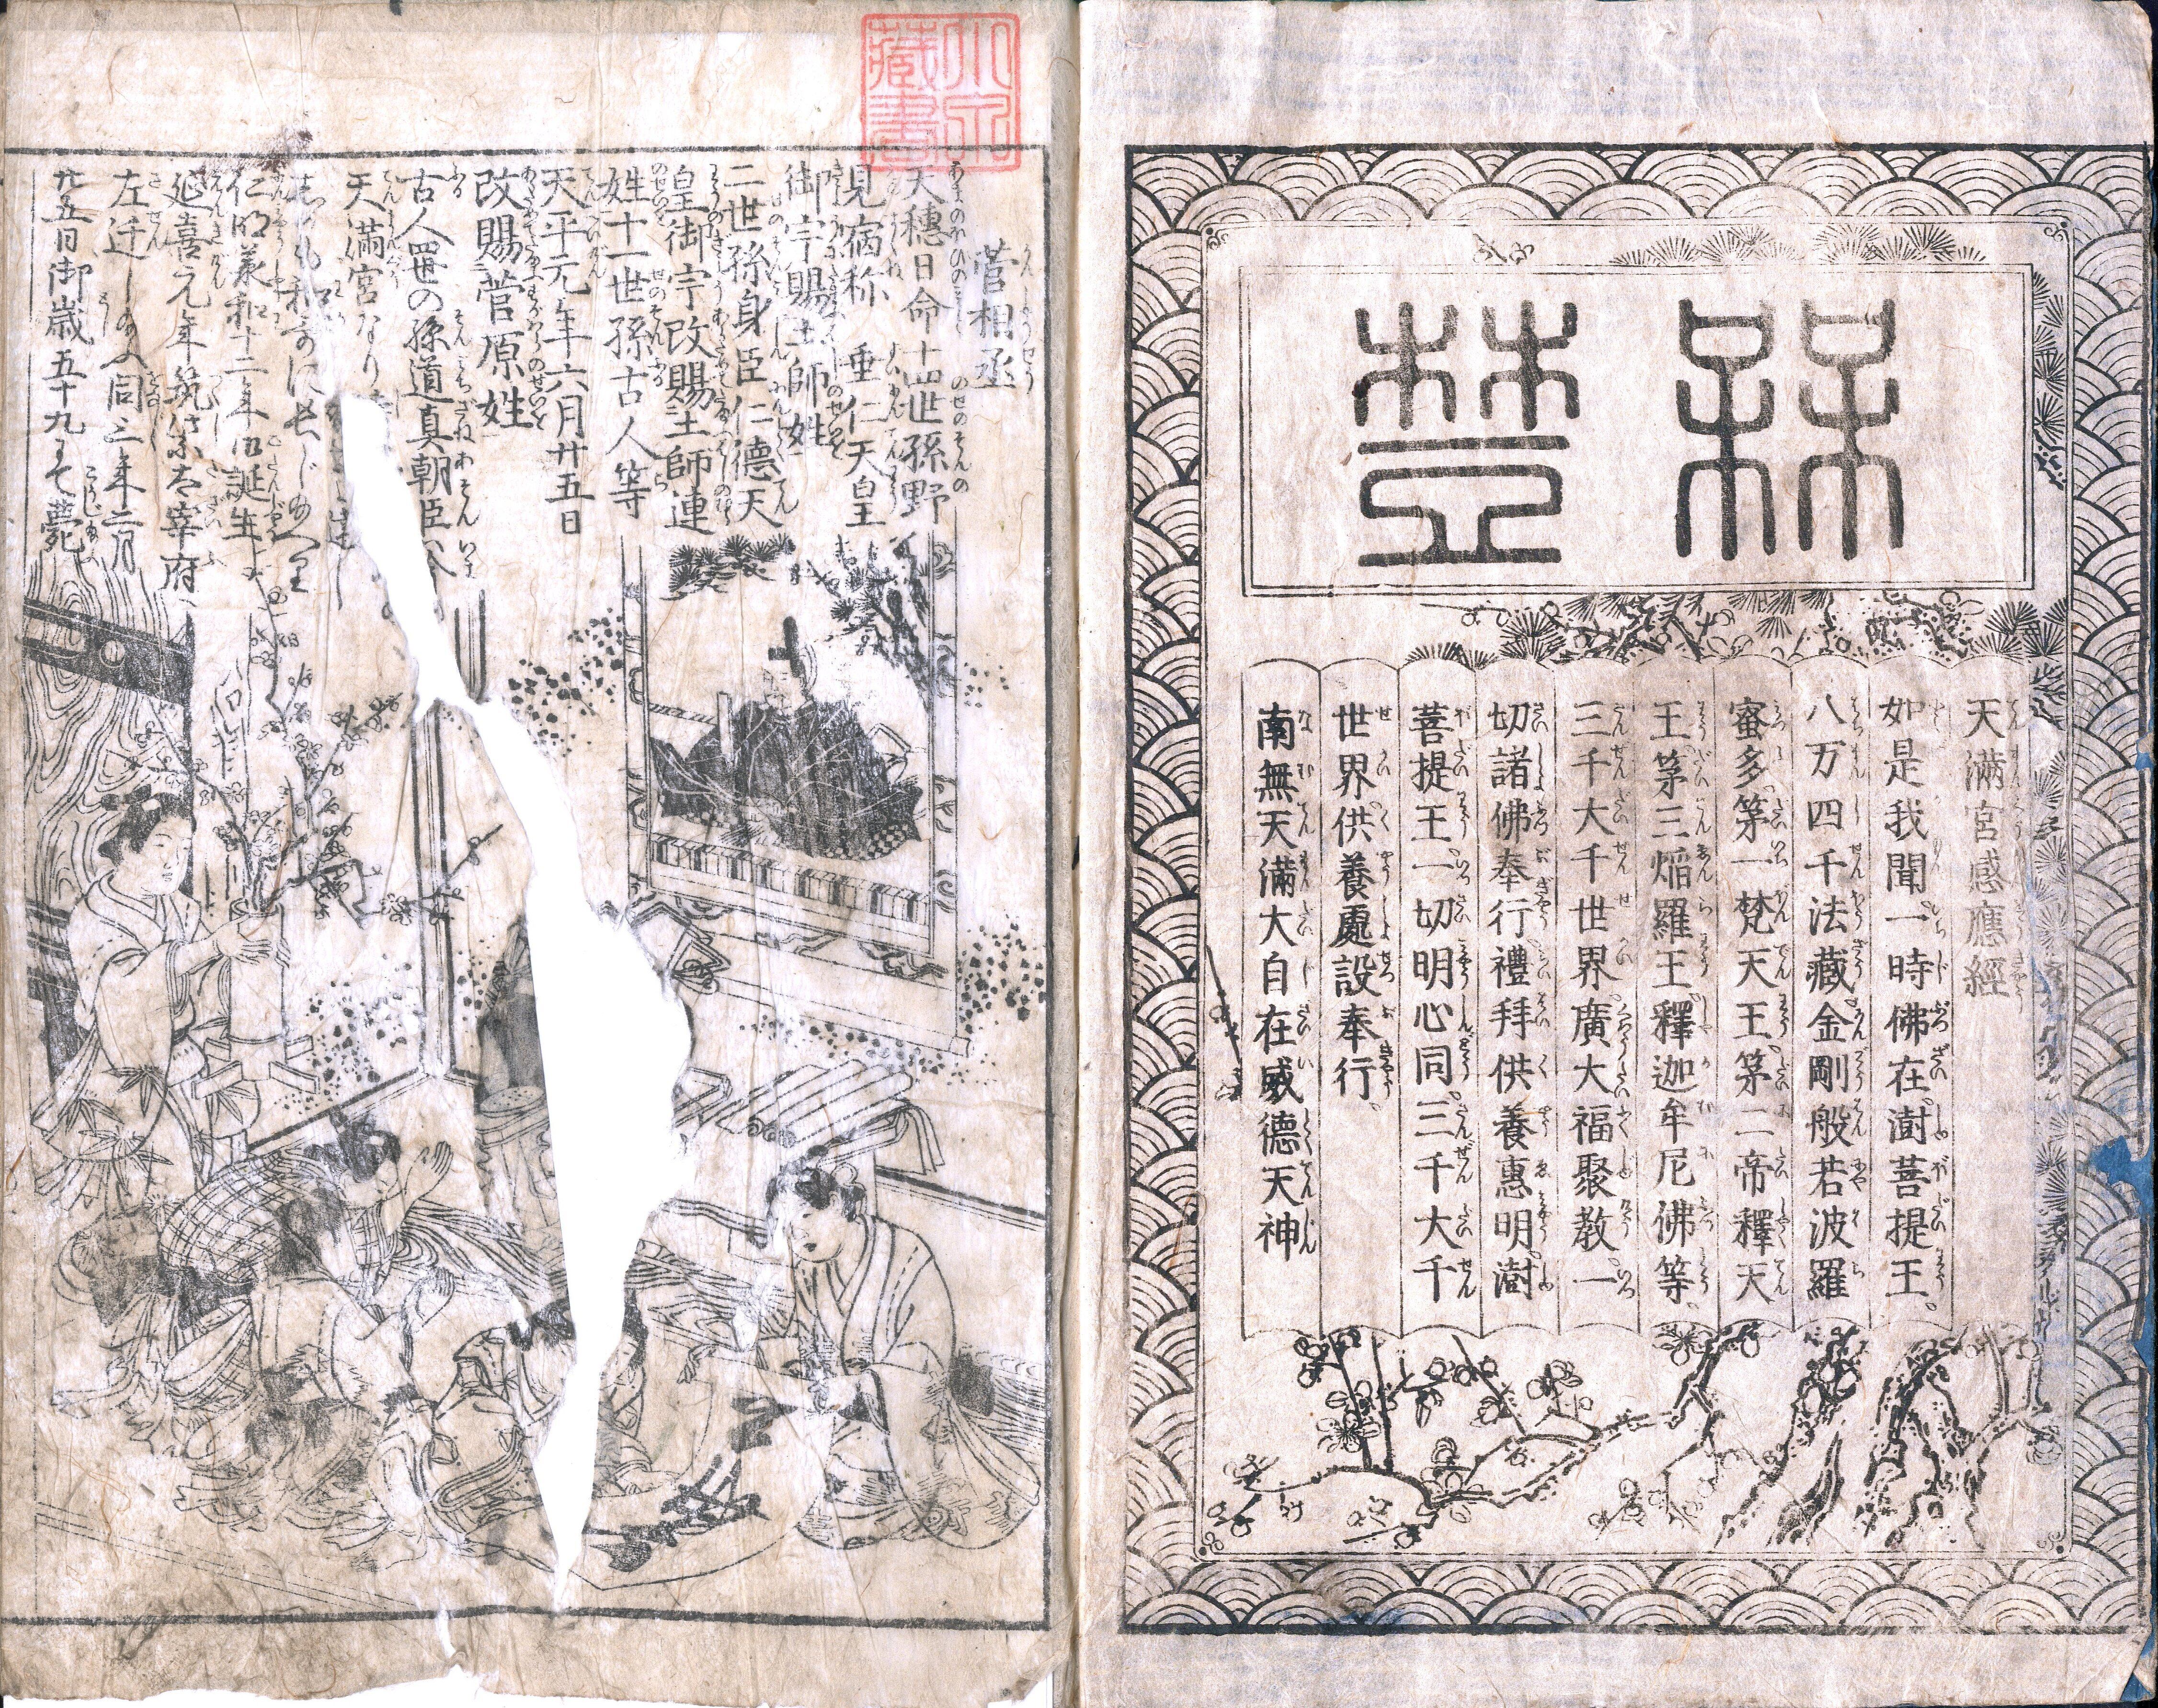 天滿宮感應經
如是我聞一時佛在澍菩提王。
八万四千法藏金剛般若波羅
蜜多第一梵天王第二帝釋天
王第三熖羅王釋迦牟尼佛等。
三千大千世界廣大福聚教一
切諸佛奉行禮拜供養惠明澍
菩提王一切明心同三千大千
世界供養處設奉行。
南無天滿大自在威德天神
菅相丞
天穗日命十四世孫野
見宿祢 垂仁天皇
御宇賜土師姓
二世孫身臣仁德天
皇御宇改賜土師連
姓十一世孫古人等
天平元年六月廿五日
改賜菅原姓
古人四世の孫道真朝臣
天滿宮なり
仁明 十二年 誕生
延喜元年筑紫太宰府
左迁し 同三年二月
廿五日御歳五十九にて薨
藏書